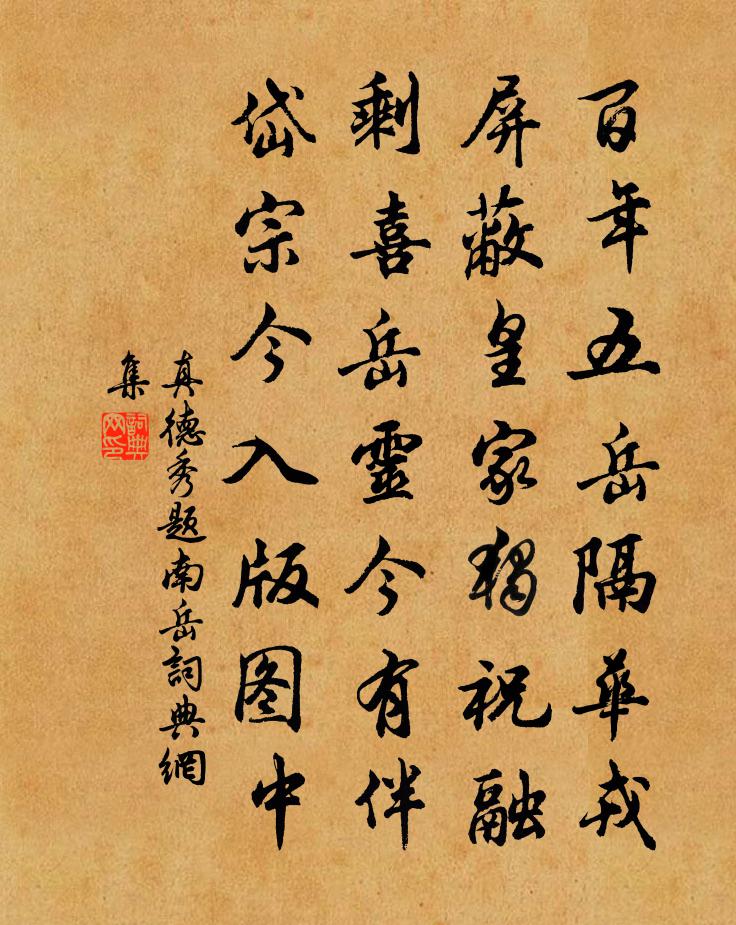 百年五岳隔華戎
屏蔽皇家獨祝融
剩喜岳靈今有伴
岱宗今入版图中
真德秀题南岳詞典網
集
詞典
网印